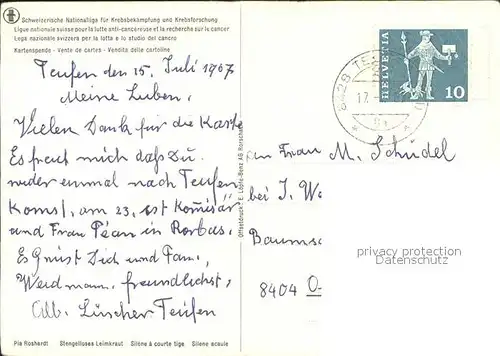 Schweizerische Nationalliga für Krebsbekämpfung und Krebsforschung
Ligue nationale suisse pour la lutte anti-cancéreuse et la recherche sur le cancer
Lega nazionale svizzera per la lotta e lo studio del cancro
Kartenspende - Vente de cartes - Vendita delle cartoline
Teufen den 15. Juli 1967
Meine Lieben,
Vielen Dank für die Karte
Es freut mich daß Du
wieder einmal nach Teufen
Komst, am 23. ist
und Frau Péan in Rorbas.
Es Grüst Dich und Fam.
Weidmann, freundlichst,
Alb. Lüscher Teufen
Pia Roshardt Stengelloses Leimkraut Silène à courte tige Silene acaule
Offsetdruck E. Löpfe-Benz AG Rorschach
HELVETIA
10
8428 TE
17.
an Frau M. Schüdel
bei J. W
Baums
8404 O
privacy protection
Datenschutz